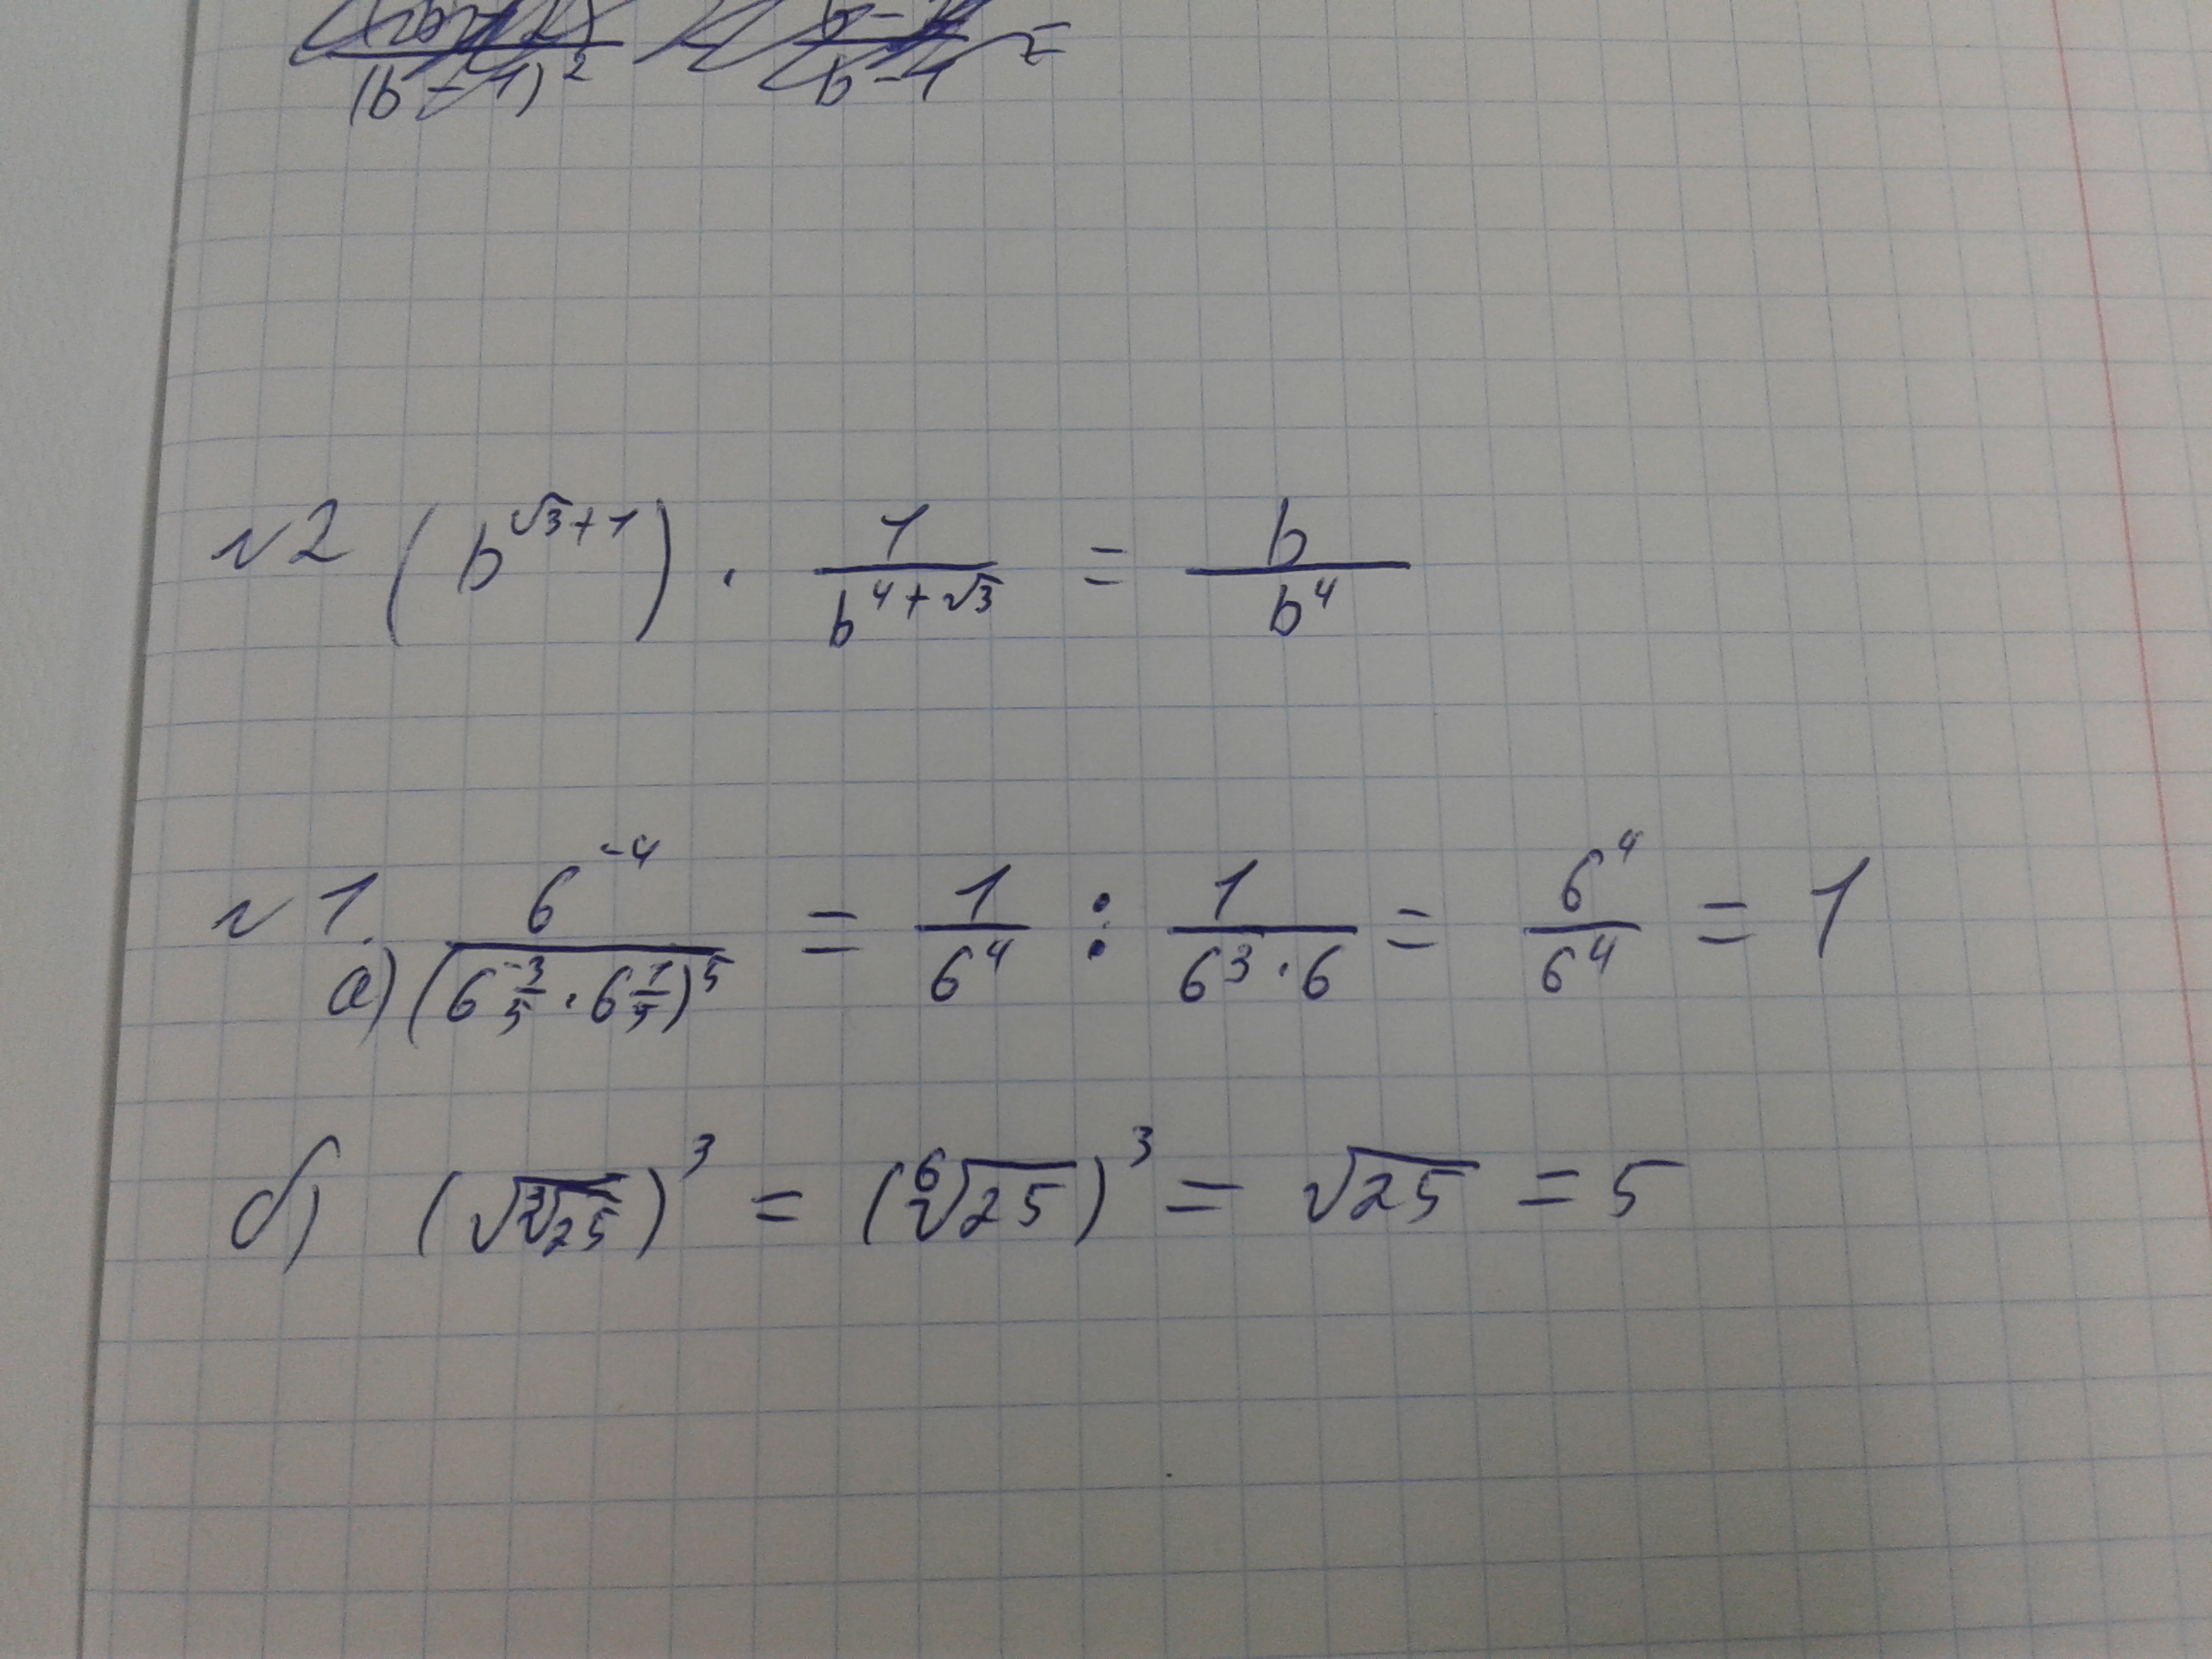 (b-1)² b-1 =
№2 (b^(√3+1)) · 1/b^(4+√3) = b/b⁴
№1. а) 6⁻⁴/(6^(-3/5) · 6^(1/5))⁵ = 1/6⁴ : 1/(6³·6) = 6⁴/6⁴ = 1
б) (√∛25)³ = (⁶√25)³ = √25 = 5